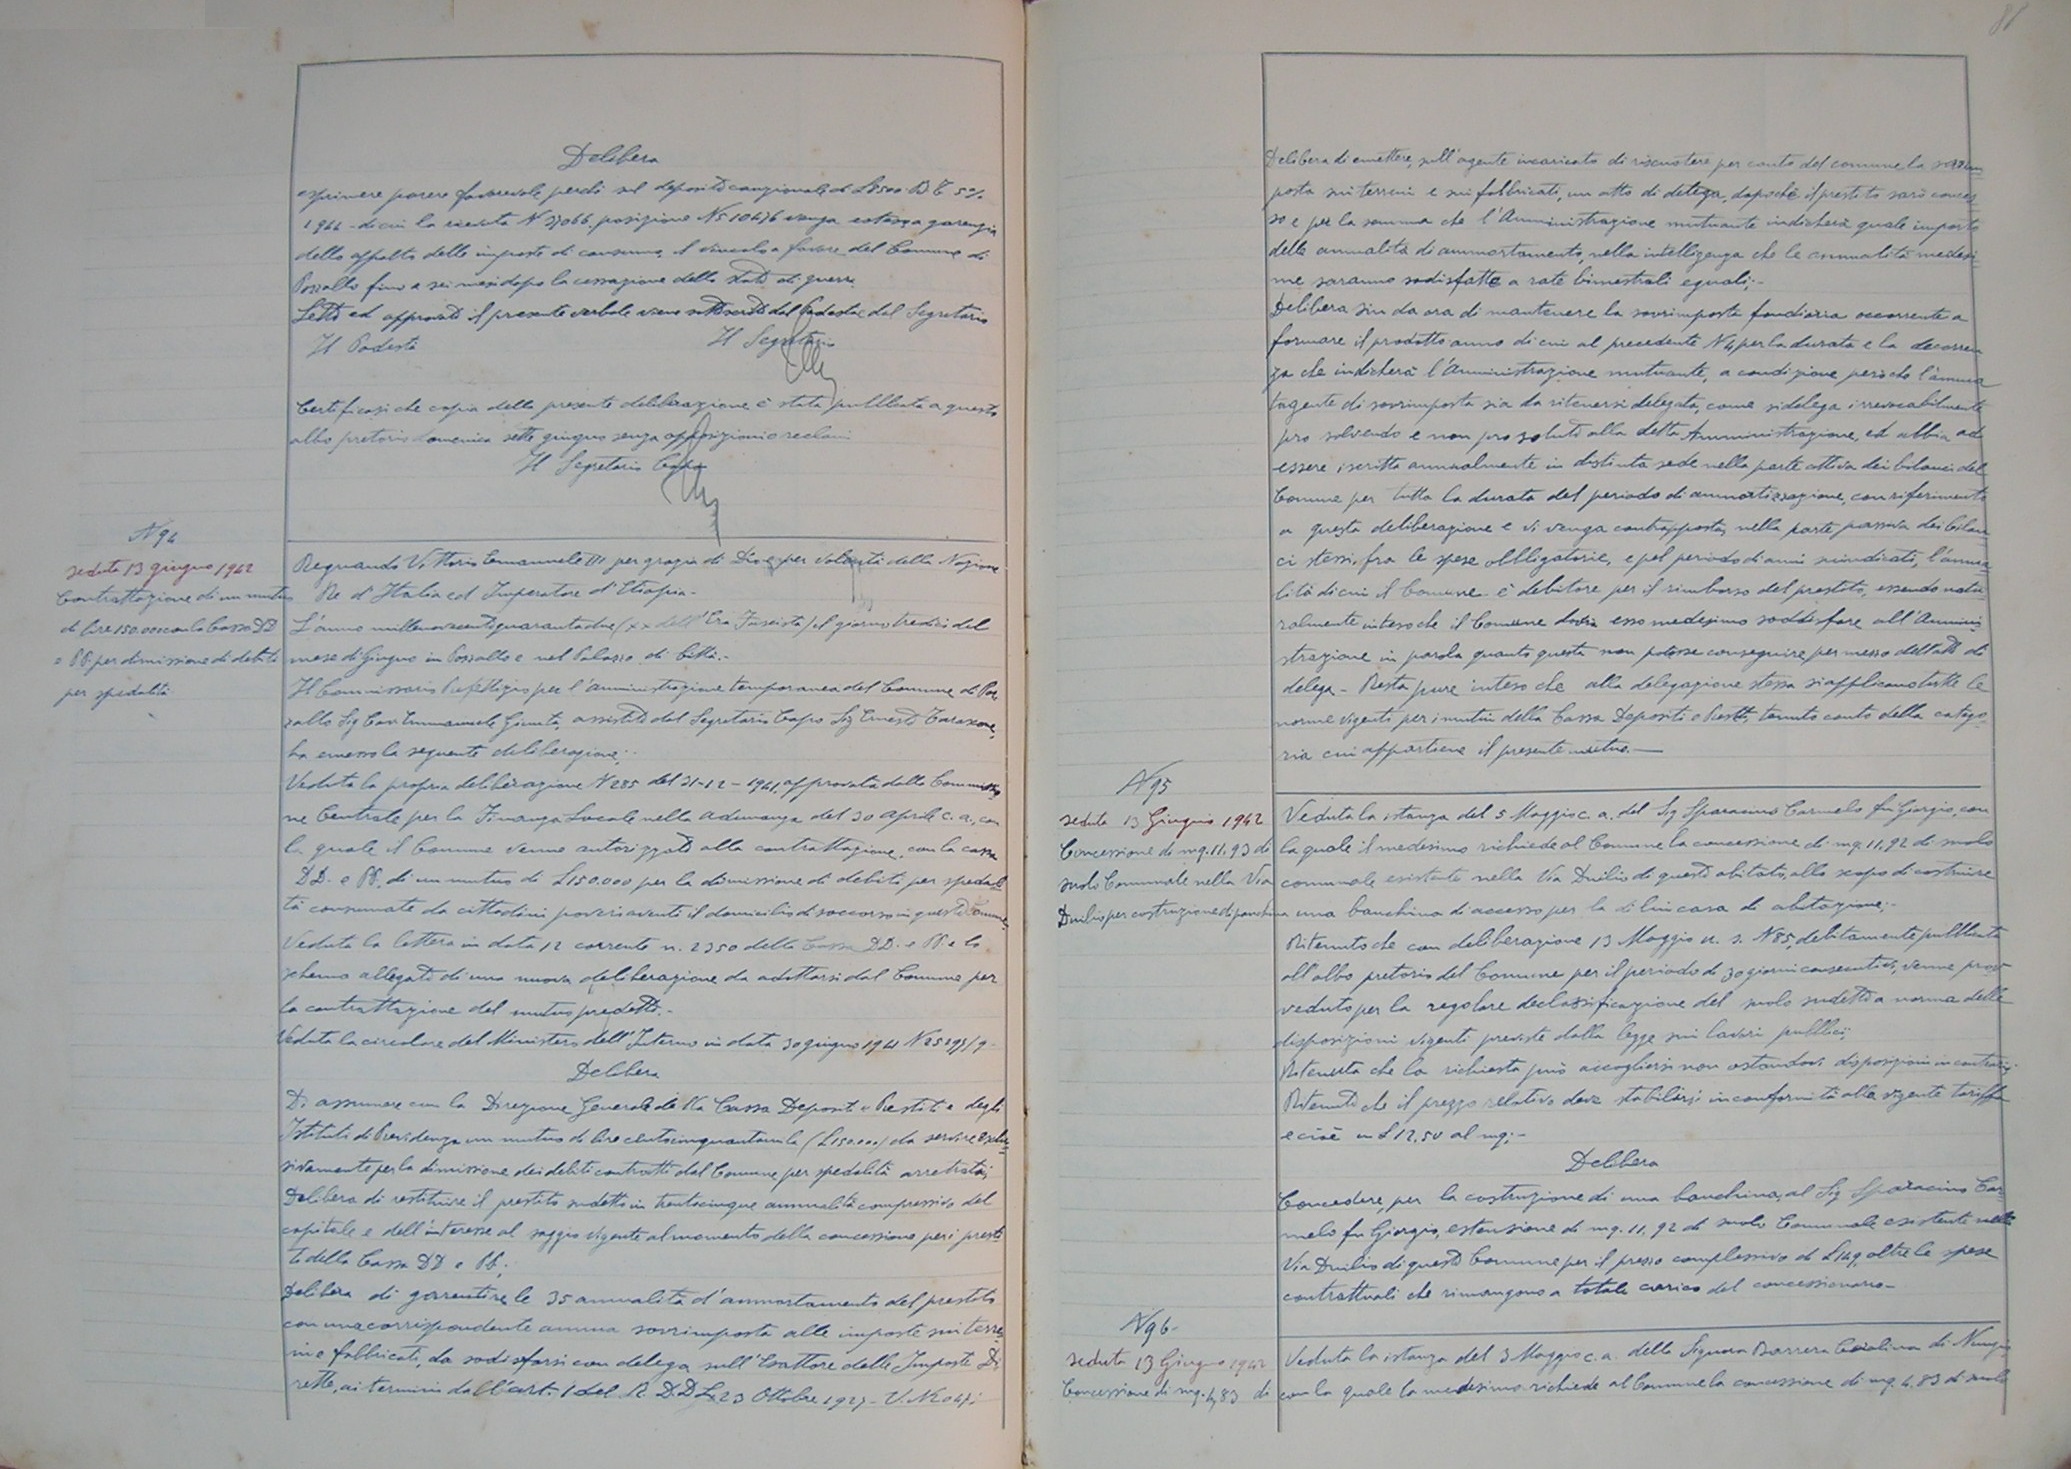 Delibera
esprimere parere favorevole perchè sul deposito cauzionale di L 8500 B. T 5%
1944 - di cui la ricevuta N 27066, posizione N 510476 venga estesa a garenzia
dello appalto delle imposte di consumo, il vincolo a favore del Comune di
Pozzallo fino a sei mesi dopo la cessazione dello stato di guerra
Letto ed approvato il presente verbale viene sottoscritto dal Podestà e dal Segretario
Il Podestà Il Segretario
Certificasi che copia della presente deliberazione è stata pubblicata a questo
albo pretorio domenica sette giugno senza opposizioni o reclami
Il Segretario Capo
N 94
seduta 13 giugno 1942
Contrattazione di un mutuo
di lire 150.000 con la Cassa DD
e PP. per dimissione di debiti
per spedalità
Regnando Vittorio Emanuele III per grazia di Dio e per volontà della Nazione
Re d'Italia ed Imperatore d'Etiopia -
L'anno millenovecentoquarantadue (XX dell'Era Fascista) il giorno tredici del
mese di Giugno in Pozzallo e nel Palazzo di Città. -
Il Commissario Prefettizio per l'amministrazione temporanea del Comune di Poz
zallo Sig Cav Emmanuele Giunta, assistito dal Segretario Capo Sig Ernesto Tarascone,
ha emesso la seguente deliberazione: -
Veduta la propria deliberazione N 285 del 31-12-1941, approvata dalla Commissio
ne Centrale per la Finanza Locale nella adunanza del 30 aprile c. a., con
la quale il Comune venne autorizzato alla contrattazione, con la cassa
DD. e PP. di un mutuo di L 150.000 per la dimissione di debiti per spedali
tà consumate da cittadini poveri aventi il domicilio di soccorso in questo Comune
Veduta la lettera in data 12 corrente n. 2350 della Cassa DD. e PP. e lo
schema allegato di una nuova deliberazione da adottarsi dal Comune per
la contrattazione del mutuo predetto. -
Veduta la circolare del Ministero dell'Interno in data 30 giugno 1941 N 25295/9 -
Delibera
Di assumere con la Direzione Generale della Cassa Depositi e Prestiti e degli
Istituti di Previdenza un mutuo di lire centocinquantamila (L 150.000) da servire esclu-
sivamente per la dimissione dei debiti contratti dal Comune per spedalità arretrate;
Delibera di restituire il prestito sudetto in trentacinque annualità comprensive del
capitale e dell'interesse al saggio vigente al momento della concessione per i presti-
ti della Cassa DD e PP.;
Delibera di garentire le 35 annualità d'ammortamento del prestito
con una corrispondente annua sovrimposta alle imposte sui terre-
ni e fabbricati, da sodisfarsi con delega sull'Esattore delle Imposte Di
rette, ai termini dell'art. 1 del R. D D L 23 Ottobre 1927 - V. N 2047;
Delibera di emettere, sull'agente incaricato di riscuotere per conto del comune la sovrim
posta sui terreni e sui fabbricati, un atto di delega, dopochè il prestito sarà conces
so e per la somma che l'Amministrazione mutuante indicherà quale importo
della annualità di ammortamento, nella intelligenza che le annualità medesi-
me saranno sodisfatte a rate bimestrali eguali; -
Delibera sin da ora di mantenere la sovrimposta fondiaria occorrente a
formare il prodotto annuo di cui al precedente N 4 per la durata e la decorren
za che indicherà l'Amministrazione mutuante, a condizione però che l'annua
tagente di sovrimposta sia da ritenersi delegata, come si delega irrevocabilmente
pro solvendo e non pro soluto alla detta Amministrazione, ed abbia ad
essere iscritta annualmente in distinta sede nella parte attiva dei bilanci del
Comune per tutta la durata del periodo di ammortizzazione, con riferimento
a questa deliberazione e vi venga contrapposta, nella parte passiva dei bilan
ci stessi, fra le spese obbligatorie, e pel periodo di anni suindicati, l'annua
lità di cui il Comune è debitore per il rimborso del prestito, essendo natu
ralmente inteso che il Comune dovrà esso medesimo soddisfare all'Ammini-
strazione in parola quanto questa non potesse conseguire per mezzo dell'atto di
delega - Resta pure inteso che alla delegazione stessa si applicano tutte le
norme vigenti per i mutui della Cassa Depositi e Prestiti, tenuto conto della catego-
ria cui appartiene il presente mutuo. -
N 95
seduta 13 Giugno 1942
Concessione di mq. 11,93 di
suolo Comunale nella Via
Duilio per costruzione di panchina
Veduta la istanza del 5 Maggio c. a. del Sig Sparacino Carmelo fu Giorgio, con
la quale il medesimo richiede al Comune la concessione di mq. 11,92 di suolo
comunale esistente nella Via Duilio di questo abitato, allo scopo di costruire
una banchina di accesso per la di lui casa di abitazione; -
Ritenuto che con deliberazione 13 Maggio u. s. N 85, debitamente pubblicata
all'albo pretorio del Comune per il periodo di 30 giorni consecutivi, venne prov
veduto per la regolare declassificazione del suolo sudetto a norma delle
disposizioni vigenti previste dalla legge sui lavori pubblici;
Ritenuta che la richiesta può accogliersi non ostandovi disposizioni in contrario;
Ritenuto che il prezzo relativo deve stabilirsi in conformità alla vigente tariffa
e cioè in L 12,50 al mq; -
Delibera
Concedere, per la costruzione di una banchina, al Sig Sparacino Car-
melo fu Giorgio, estensione di mq. 11,92 di suolo Comunale esistente nella
Via Duilio di questo Comune per il prezzo complessivo di L 149, oltre le spese
contrattuali che rimangono a totale carico del concessionario -
N 96 -
seduta 13 Giugno 1942
Concessione di mq. 4,83 di
Veduta la istanza del 3 Maggio c. a. della Signora Barrera Carolina di Nunzio
con la quale la medesima richiede al Comune la concessione di mq. 4,83 di suolo